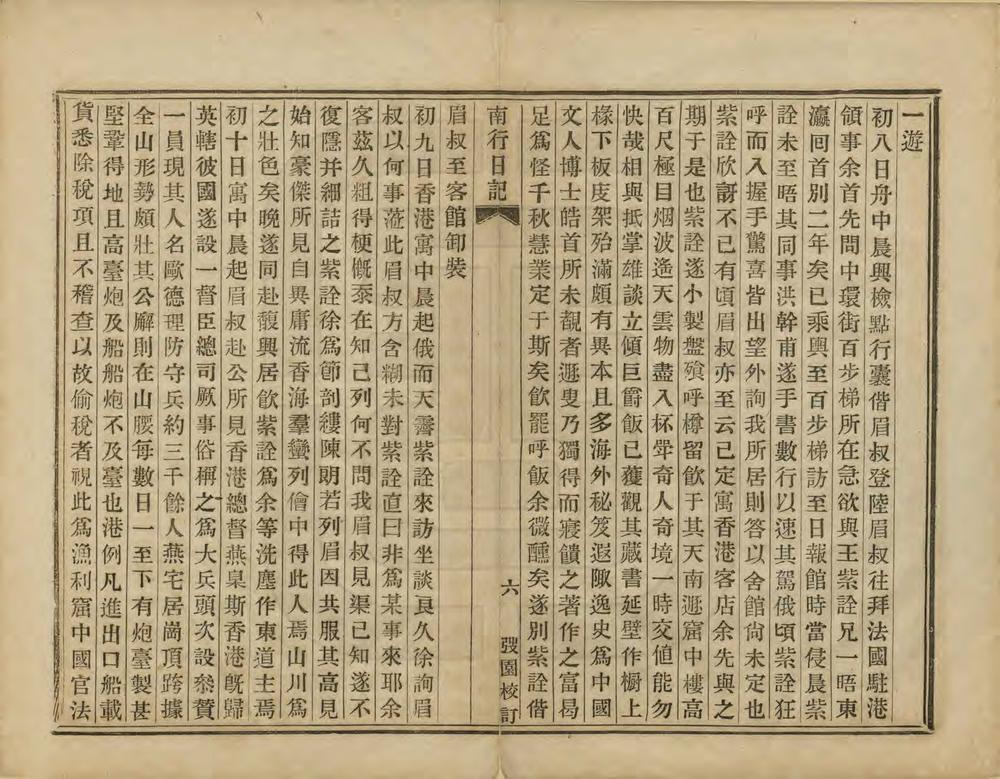 一遊
初八日舟中晨興檢點行囊偕眉叔登陸眉叔往拜法國駐港
領事余首先問中環街百步梯所在急欲與王紫詮兄一晤東
瀛回首別二年矣已乘輿至百步梯訪至日報館時當侵晨紫
詮未至晤其同事洪幹甫遂手書數行以速其駕俄頃紫詮狂
呼而入握手驚喜皆出望外詢我所居則答以舍館尚未定也
紫詮欣訝不已有頃眉叔亦至云已定寓香港客店余先與之
期于是也紫詮遂小製盤飱呼樽留飲于其天南遯窟中樓高
百尺極目烟波遙天雲物盡入杯斝奇人奇境一時交値能勿
快哉相與抵掌雄談立傾巨爵飯已獲觀其藏書延壁作櫥上
椽下板庋架殆滿頗有異本且多海外秘笈遐陬逸史爲中國
文人博士皓首所未覩者遯叟乃獨得而寢饋之著作之富曷
足爲怪千秋慧業定于斯矣飲罷呼飯余微醺矣遂別紫詮偕
南行日記
六
弢園校訂
眉叔至客館卸裝
初九日香港寓中晨起俄而天霽紫詮來訪坐談良久徐詢眉
叔以何事蒞此眉叔方含糊未對紫詮直曰非爲某事來耶余
客茲久粗得梗概忝在知己列何不問我眉叔見渠已知遂不
復隱并細詰之紫詮徐爲節剖縷陳朗若列眉因共服其高見
始知豪傑所見自異庸流香海羣蠻列儈中得此人焉山川爲
之壯色矣晚遂同赴馥興居飲紫詮爲余等洗塵作東道主焉
初十日寓中晨起眉叔赴公所見香港總督燕臬斯香港旣歸
英轄彼國遂設一督臣總司厥事俗稱之爲大兵頭次設叅贊
一員現其人名歐德理防守兵約三千餘人燕宅居崗頂跨據
全山形勢頗壯其公廨則在山腰每數日一至下有炮臺製甚
堅鞏得地且高臺炮及船船炮不及臺也港例凡進出口船載
貨悉除稅項且不稽查以故偷稅者視此爲漁利窟中國官法